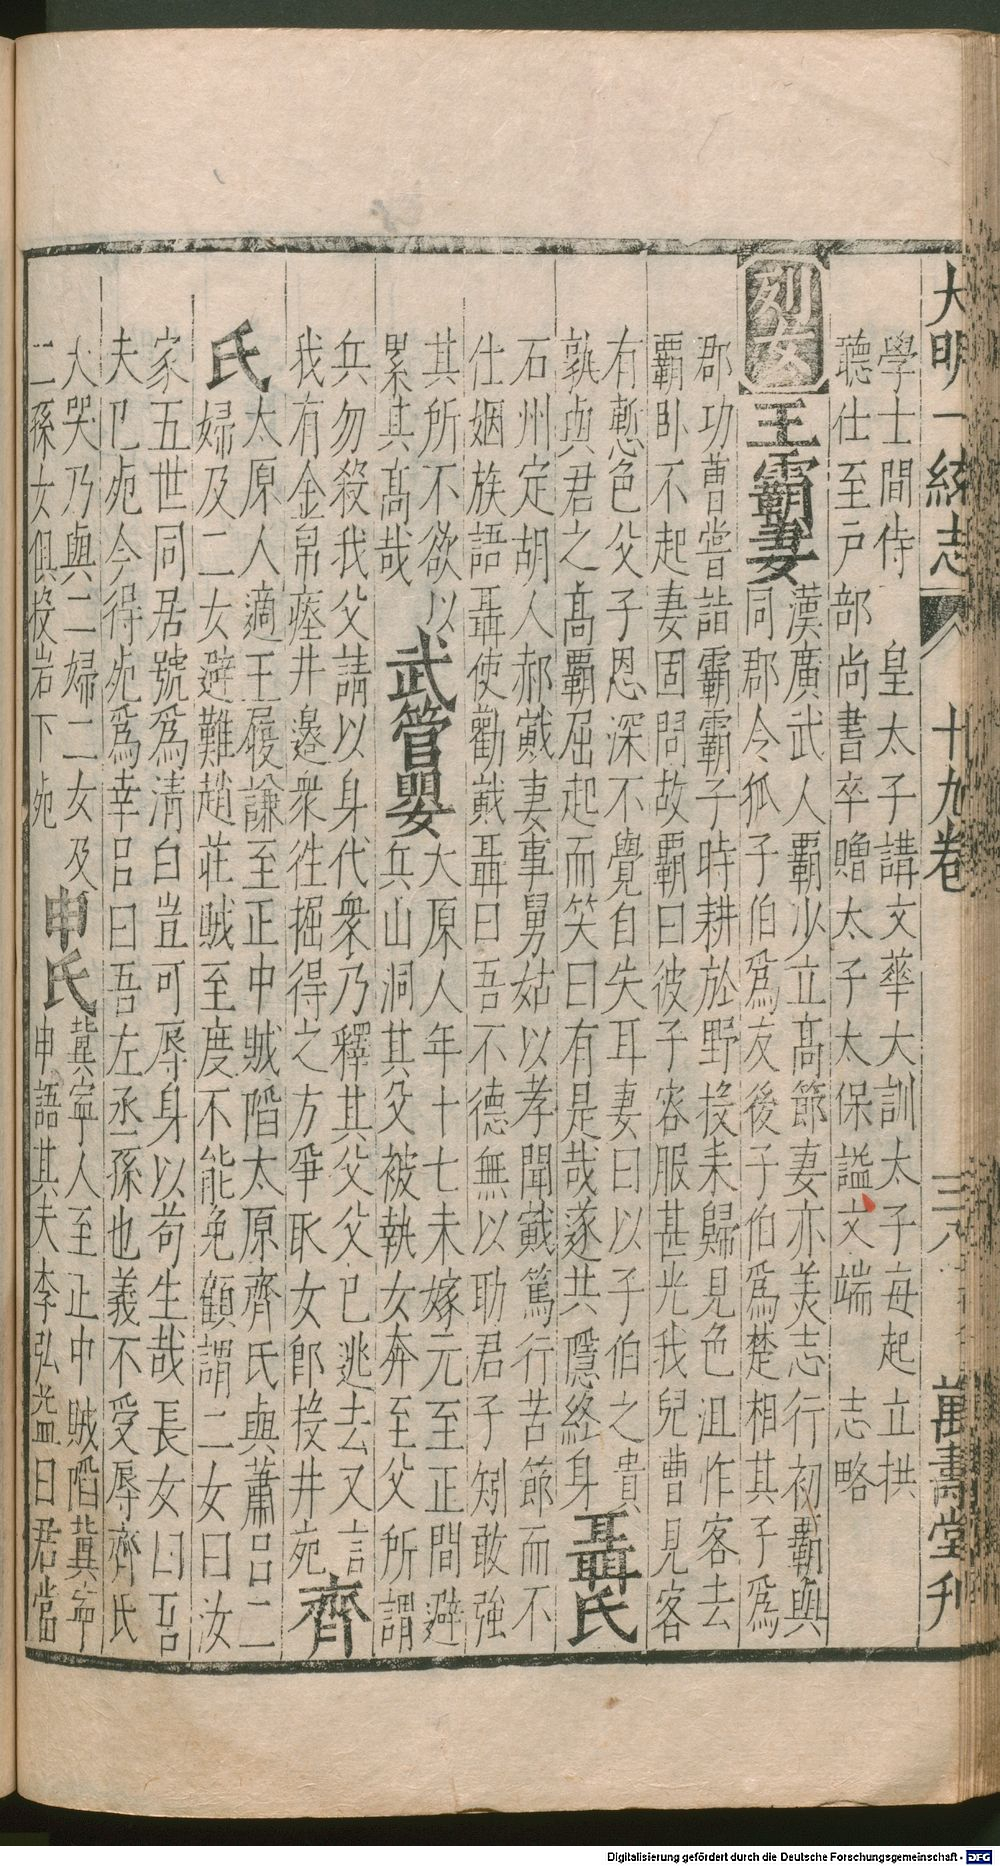 大明一統志 十九卷 三 萬壽堂刋
學士間侍 皇太子講文華大訓太子每起立拱
聽仕至戸部尚書卒贈太子太保謚文端 志略
列女 王霸妻 漢廣武人霸少立髙節妻亦羙志行初霸與
同郡令狐子伯爲友後子伯爲楚相其子爲
郡功曹嘗詣霸霸子時耕於野投耒歸見客色沮怍客去
霸卧不起妻固問故霸曰彼子容服甚光我兒曹見客
有慙色父子恩深不覺自失耳妻曰以子伯之貴
孰與君之髙霸屈起而笑曰有是哉遂共隱終身 聶氏
石州定胡人郝戭妻事舅姑以孝聞戭篤行苦節而不
仕姻族語聶使勸戭聶曰吾不德無以助君子矧敢強
其所不欲以
累其髙哉 武管嬰 大原人年十七未嫁元至正間避
兵山洞其父被執女奔至父所謂
兵勿殺我父請以身代衆乃釋其父父已逃去又言
我有金帛瘞井邉衆徃掘得之方爭取女郎投井宛 齊
氏 太原人適王履謙至正中賊陷太原齊氏與蕭呂二
婦及二女避難趙莊賊至度不能免顧謂二女曰汝
家五世同居號爲清白豈可辱身以苟生哉長女曰吾
夫已宛今得宛爲幸呂曰吾左丞孫也義不受辱齊氏
大哭乃與二婦二女及
二孫女俱投岩下宛 申氏 兾寧人至正中賊陷兾寧
申語其夫李弘益曰君當
Digitalisierung gefördert durch die Deutsche Forschungsgemeinschaft - DFG